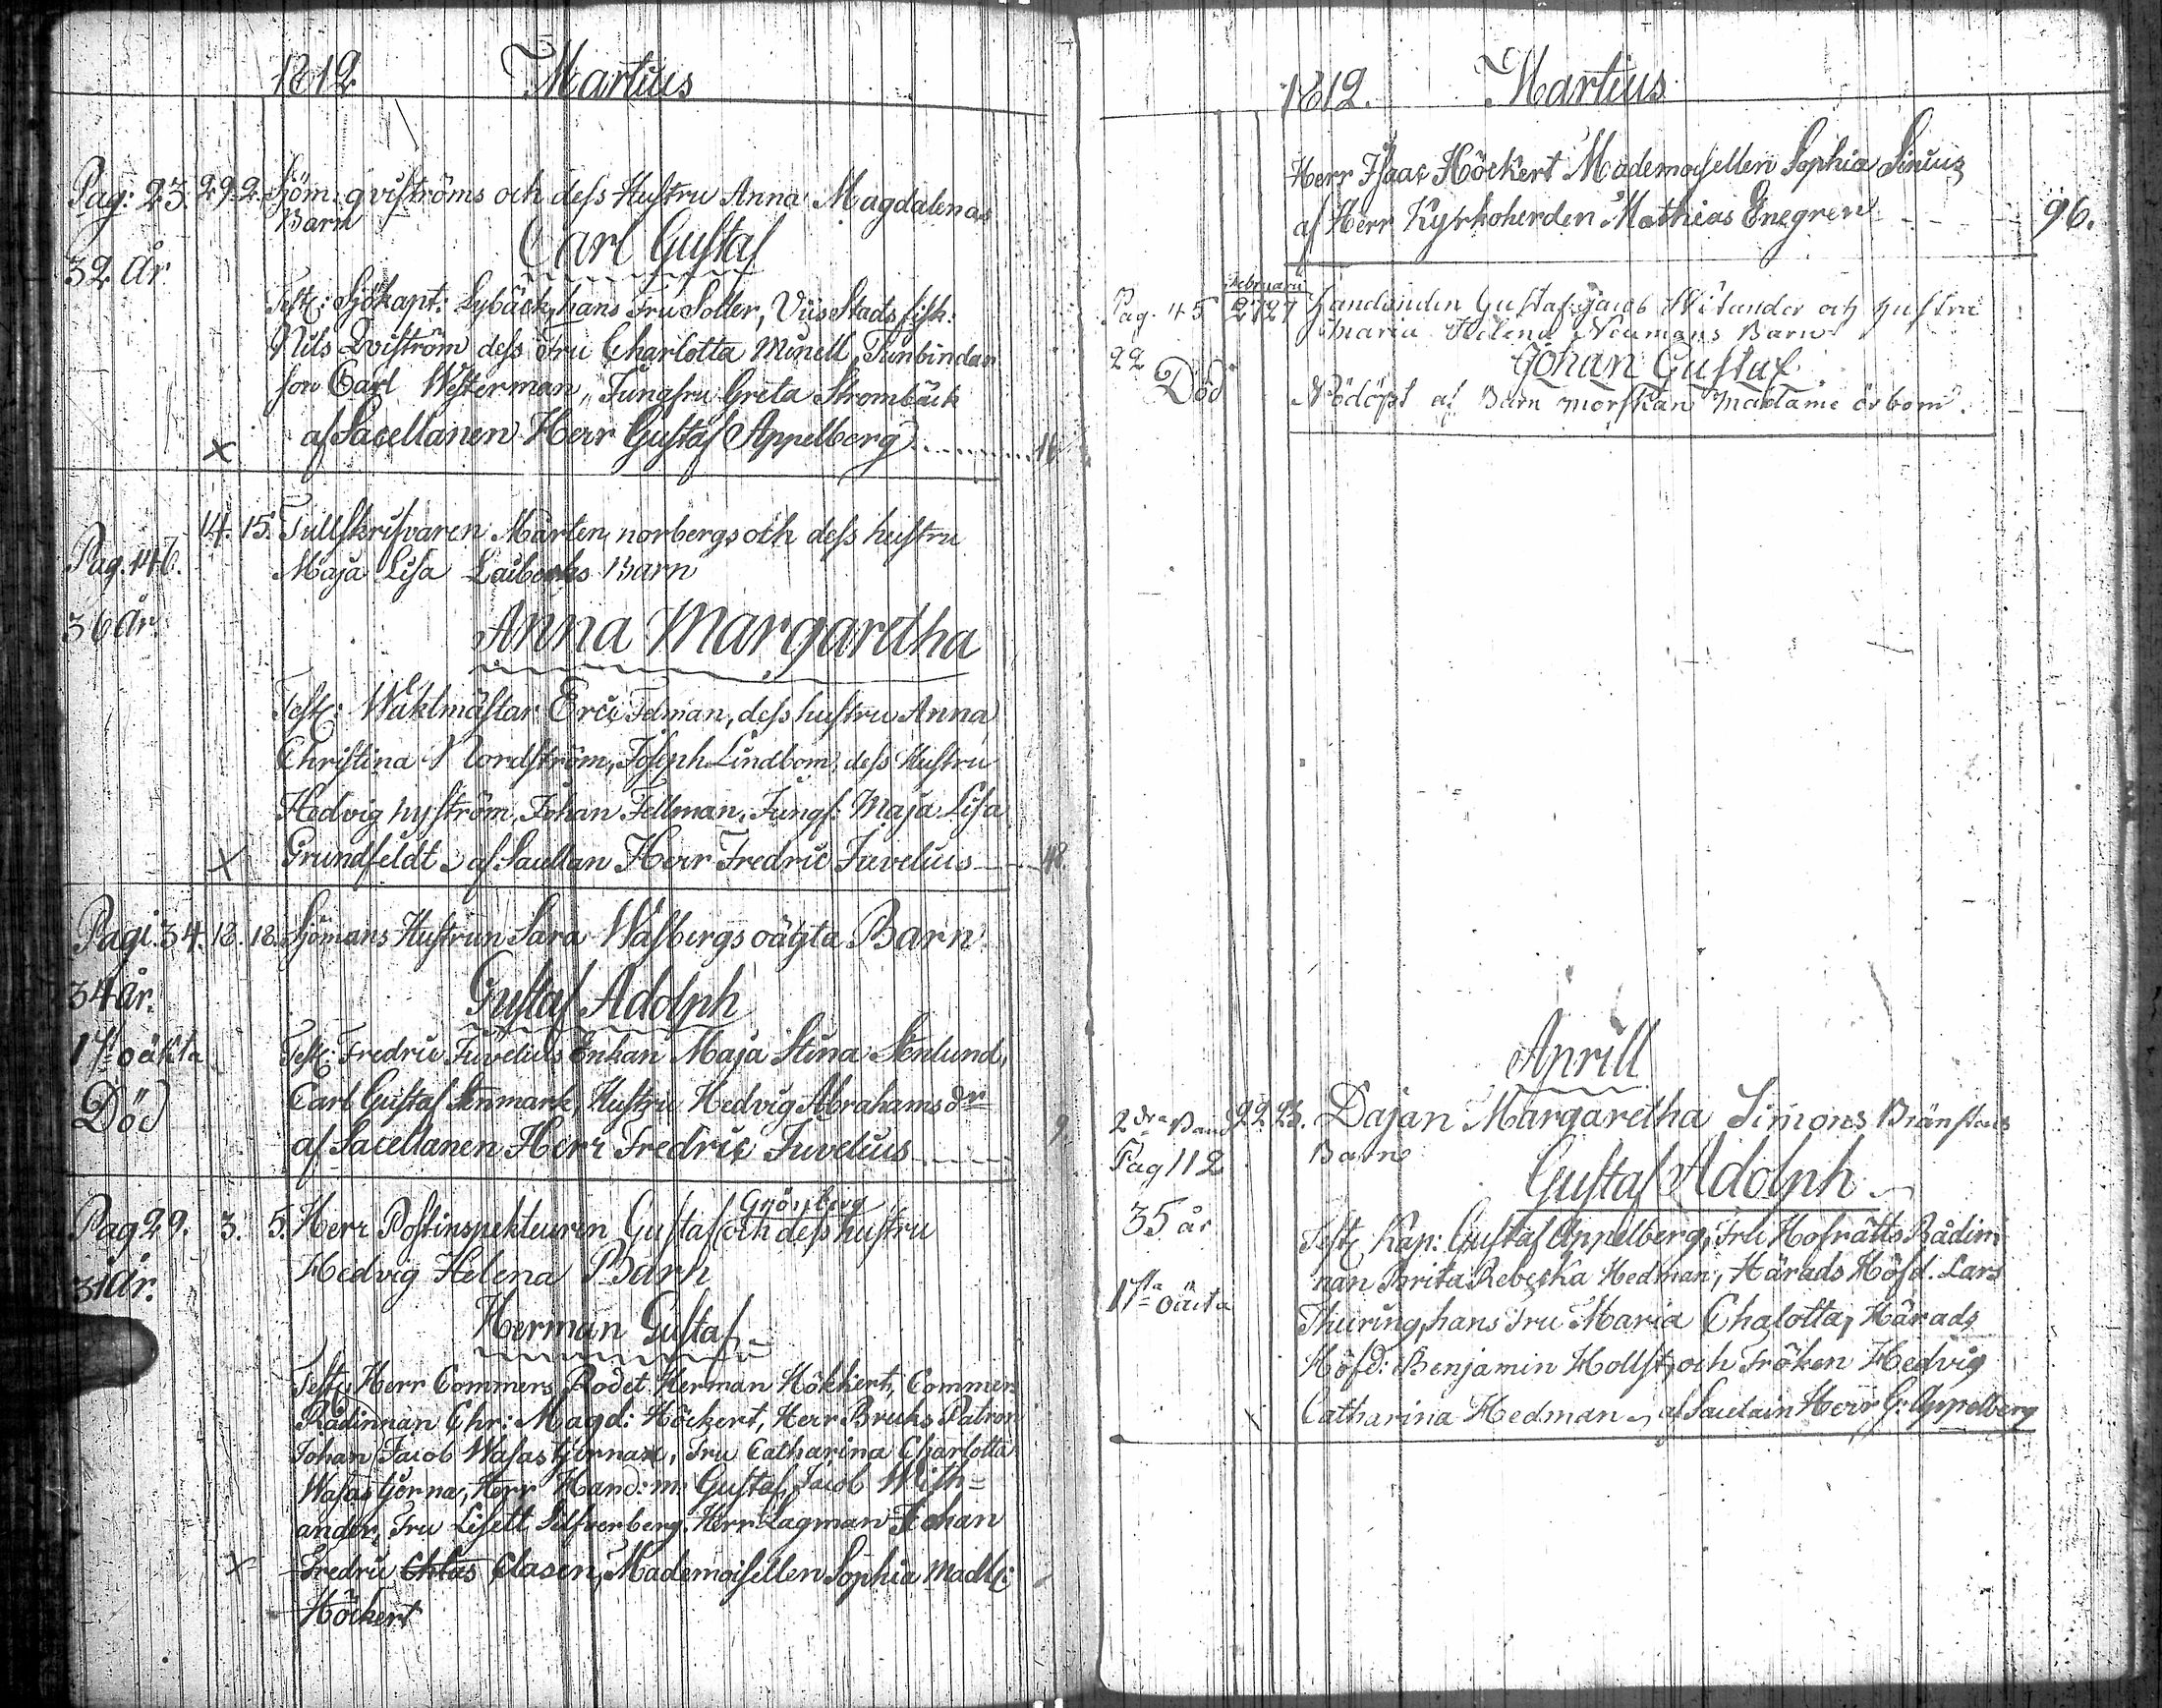 1812 Martius
Pag: 23. 29. 2. Sjöm: qviströms och dess Hustru Anna Magdalenas
Barn
Carl Gustaf
32 År
Test: Sjökapt: Lybäck, hans Fru Soller, Viis Stads fisk:
Nils Qviström dess Fru Charlotta Minell, Tunbindar
son Carl Westerman, Jungfru Greta Strombäck
x af Sacellanen Herr Gustaf Appelberg 16
14. 15. Tullskrifvaren Mårten norbergs och dess hustru
Pag. 146. Maja Lisa Laibecks Barn
36 År. Anna Margaretha
Test: Waktmästar Eric Felman, dess hustru Anna
Christina Nordström, Joseph Lindbom, dess Hustru
Hedvig nyström, Johan Fellman, Jungf: Maja Lisa
x Grundfeldt af Sacellan Herr Fredric Juvelius 48.
Pagi. 34. 18. 18. Sjömans Hustrun Sara Wasbergs oägta Barn
34 år. Gustaf Adolph
1sta oäkta Test: Fredric Juvelius Enkan Maja Stina Stenlund,
Död Carl Gustaf Stenmark, Hustru Hedvig Abrahams dr
af Sacellanen Herr Fredric Juvelius 9.
Grönberg
Pag 29. 3. 5. Herr Postinspekteuren Gustaf och dess hustru
31 År. Hedvig Helena Barn
Herman Gustaf
Test: Herr Commers Rodet Herman Hökkert, Commer
Rådinnan Chr: Magd: Höckert, Herr Bruks Patron
Johan Jacob Wasastjernan, Fru Catharina Charlotta
Wasastjerna, Herr Hand: m: Gustaf Jacob With=
ander, Fru Lisett Silfverberg, Herr Lagman Johan
x Fredric Chlas Clasen, Mademoisellen Sophia Madl:
Höckert
1812. Martius
Herr Isaac Höckert Mademoisellen Sophia Sinius
af Herr Kyrkoherden Mathias Enegren 96.
Februarii
Pag. 45 27 27 Handlanden Gustaf Jacob Witander och hustru
Maria Helena Neumans Barn
22 Johan Gustaf
Död Nödöpt af Barn morskan Madame örbom.
Aprill
2dra Band 22. 23. Dajan Margaretha Simons Bränstens
Pag 112 Barn
Gustaf Adolph
35 år Test: Kap: Gustaf Appelberg, Fru Hofrätts Rådin
nan Brita Rebecka Hedman, Härads Höfd. Lars
1sta oäcta Thuring, hans Fru Maria Chalotta, Härads
Höfd: Benjamin Hollst, och Fröken Hedvig
Catharina Hedman af Saculain Herr G: Appelberg